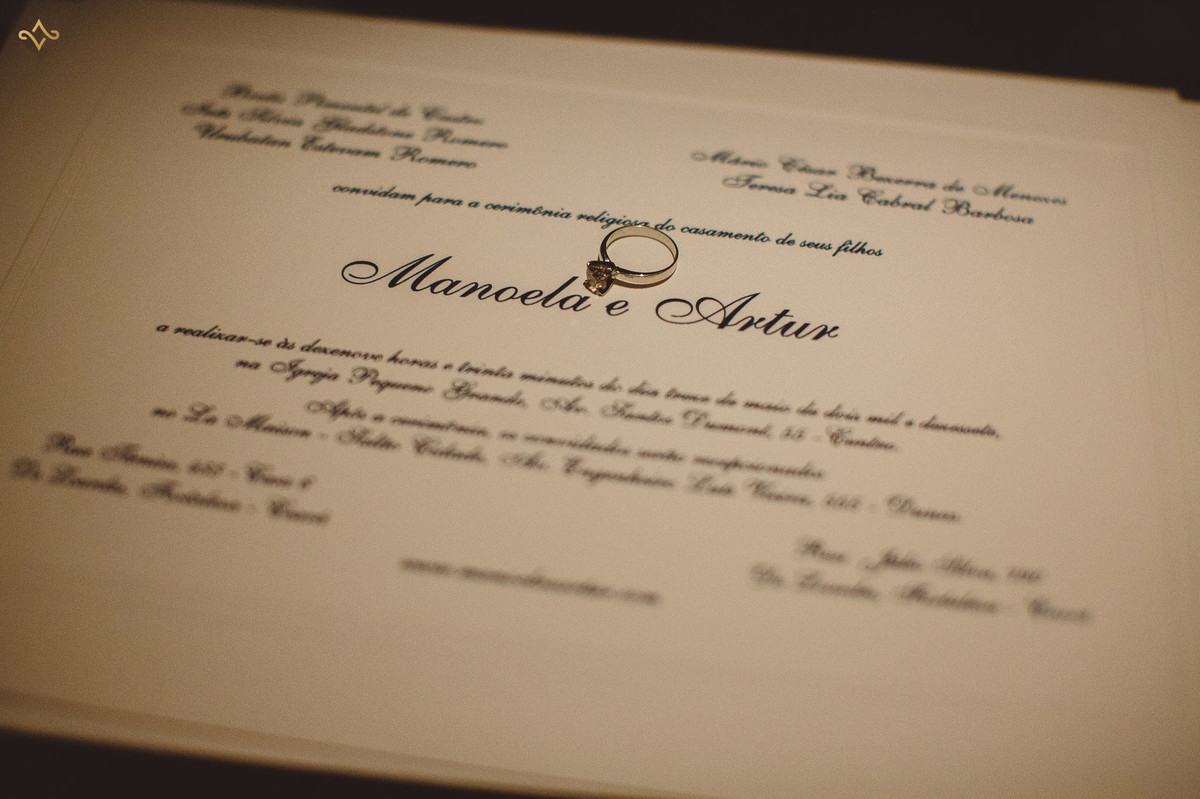 Pimentel de Castro
Inês Silvia Gladstone Romero
Umbatan Estevam Romero
Mário César Bezerra de Menezes
Teresa Lia Cabral Barbosa
convidam para a cerimônia religiosa do casamento de seus filhos
Manoela e Artur
a realizar-se às dezenove horas e trinta minutos do dia treze de maio de dois mil e dezessete,
na Igreja Pequeno Grande, Av. Santos Dumont, 55 - Centro.
Após a cerimônia, os convidados serão recepcionados
no La Maison - Salão Cidade, Av. Engenheiro Luis Vieira, 555 - Dunas.
Rua - Casa
De Lourdes, Fortaleza - Ceará
Rua Júlio Silva,
De Lourdes, Fortaleza - Ceará